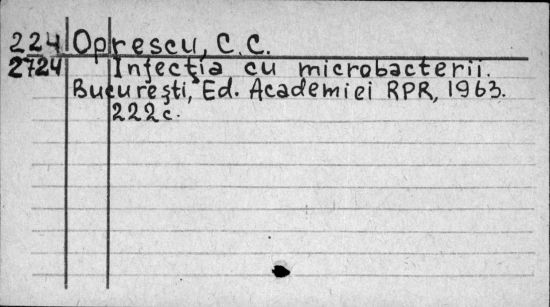 224 Oprescu, C. C.
2724 Infecția cu microbacterii.
București, Ed. Academiei RPR, 1963.
222 c.